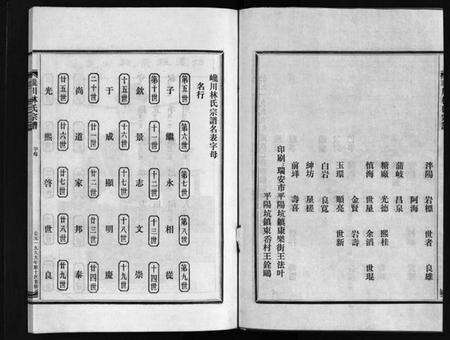 泮陽 岩標 世者 良雄
阿海
蒲岐 昌泉
糖廠 光德 熙桂
慎海 世星 余滔 世琨
金賢 岩壽
玉環 順亮 世新
白岩 良寬
紳坊 星槎
前埠 壽喜
印刷：瑞安市平陽坑鎮康樂街王法叶
平陽坑鎮東岙村王銓鷗
嶢川林氏宗譜名表字母
名行
第五世 子 第六世 繼 第七世 永 第八世 相 第九世 從
第十世 欽 十一世 景 十二世 志 十三世 文 十四世 崇
十五世 于 十六世 成 十七世 顯 十八世 明 十九世 慶
二十世 尚 廿一世 道 廿二世 家 廿三世 邦 廿四世 泰
廿五世 光 廿六世 熙 廿七世 啓 廿八世 世 廿九世 良
嶢川林氏宗譜 字母